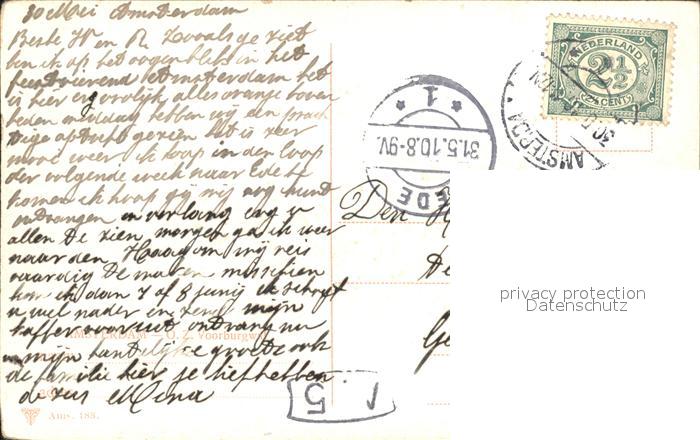 30 Mei Amsterdam
Beste W en R Zooals ge ziet
ben ik op het oogenblik in het
feestvierend Amsterdam het
is hier vroolijk, alles oranje boven
heden middag hebben wij een prach
tige optocht gezien het is zeer
mooi weer ik hoop in den loop
der volgende week naar Ede te
komen ik hoop gij mij nog kunt
ontvangen en verlang erg u
allen te zien morgen ga ik weer
naar den Haag om mij reis
vaardig te maken misschien
kom ik dan 7 of 8 junij ik schrijf
u wel nader en zend mijn
koffer vooruit ontvang nu
mijn hartelijke groete ook
de familie hier je liefhebben
de zus Mina
AMSTERDAM — O. Z. Voorburgwal
Ams. 185.
NEDERLAND
2½
2½ CENT
AMSTERDA
30
1
31.5.10.8-9V.
EDE
Den
De
Ge
5
privacy protection
Datenschutz